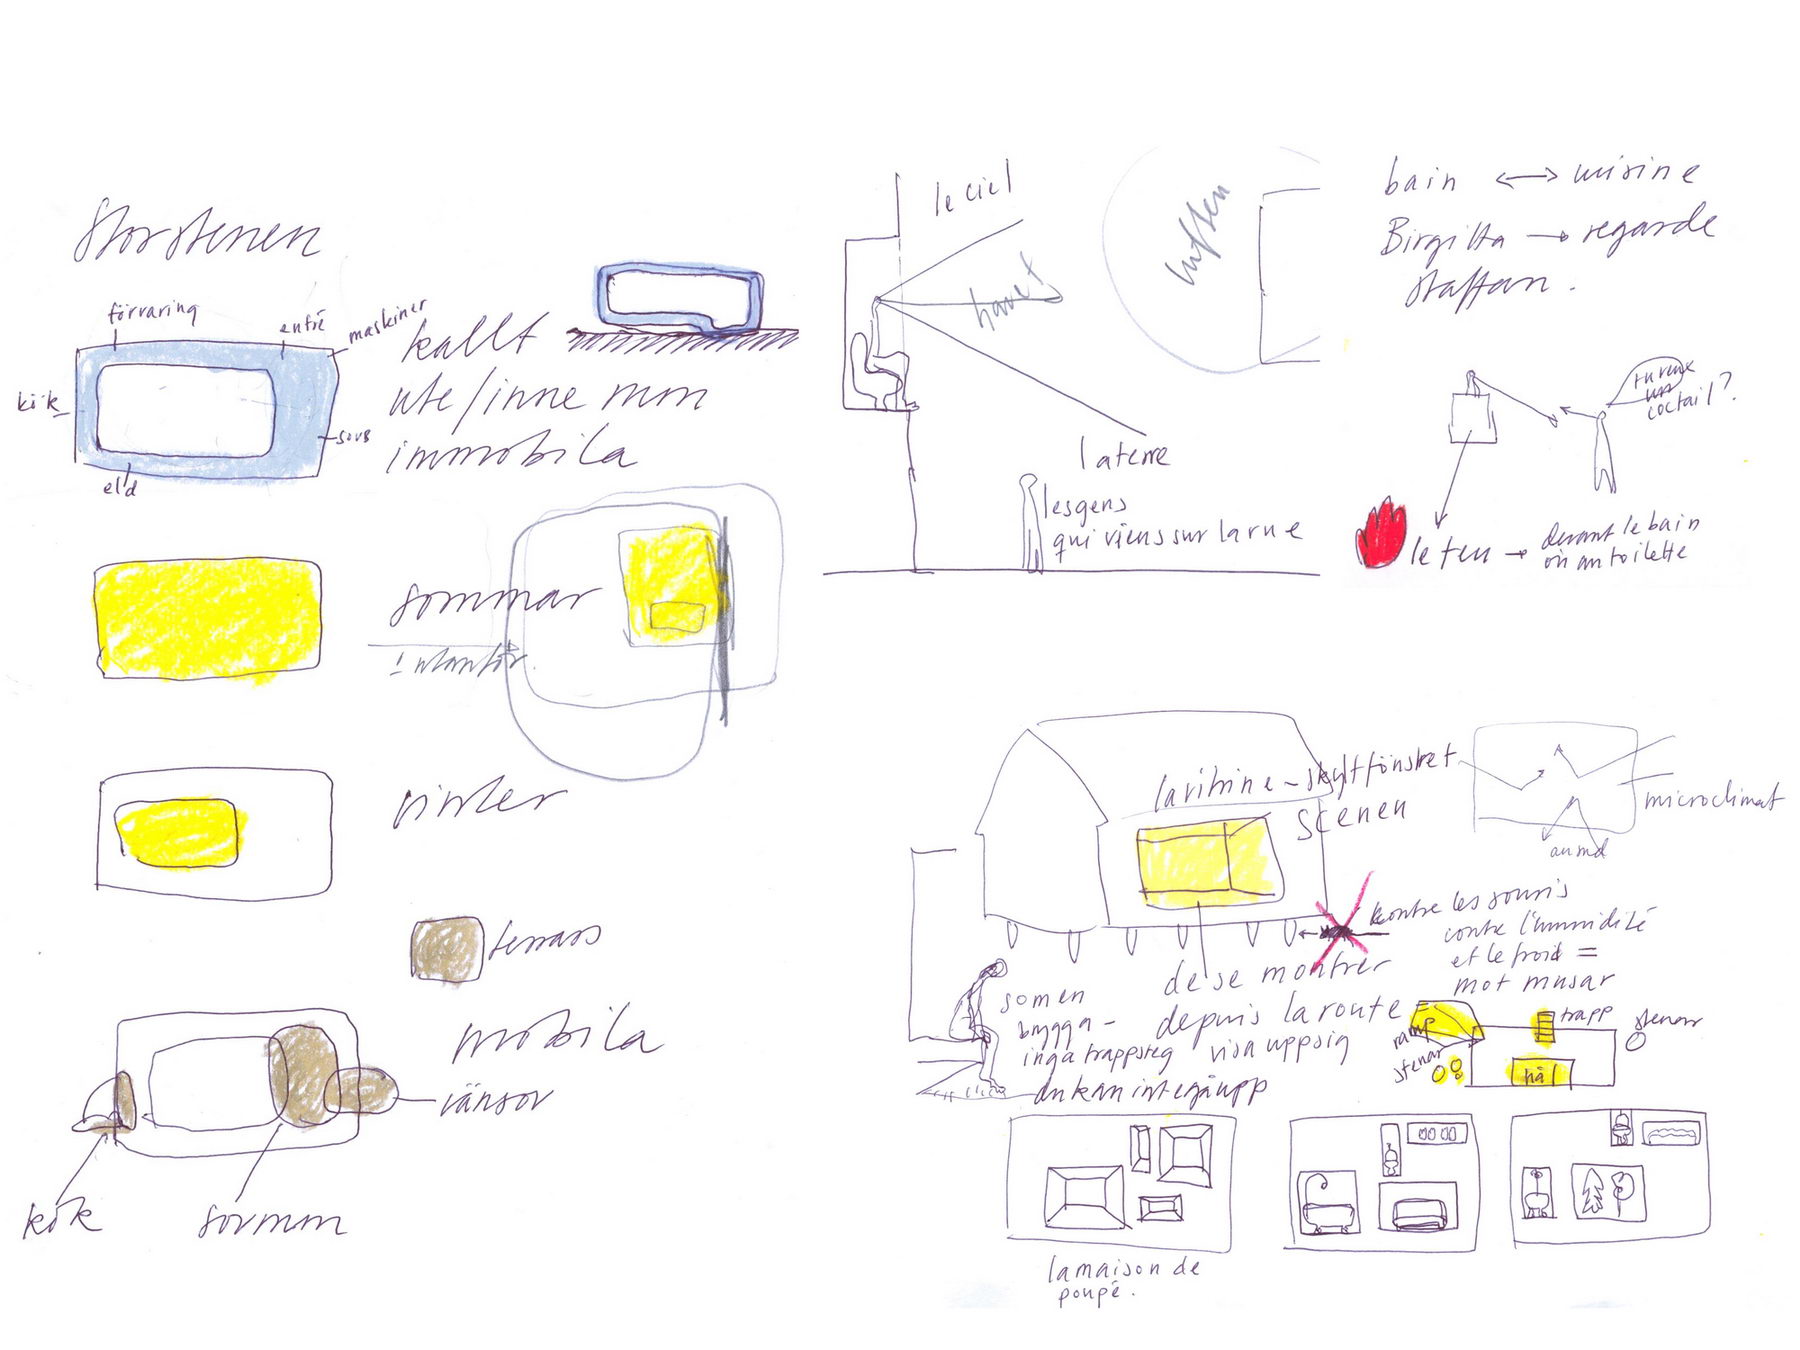 Storstenen
förvaring
entré
maskiner
kök
eld
kallt
ute/inne rum
immobila
sommar
vinter
terrass
mobila
kök
sovrum
le ciel
havet
luften
la terre
les gens
qui viens sur la rue
bain ↔ cuisine
Birgitta → regarde
Staffan.
tu veux
un
coctail?
le feu → devant le bain
ou au toilette
la vitrine – skyltfönstret
scenen
microclimat
contre les souris
contre l'humidité
et le froid =
mot musar
de se montrer
depuis la route
visa upp sig
som en
brygga –
inga trappsteg
du kan inte gå upp
ramp
stenar
trapp
stenar
hål
la maison de
poupé.